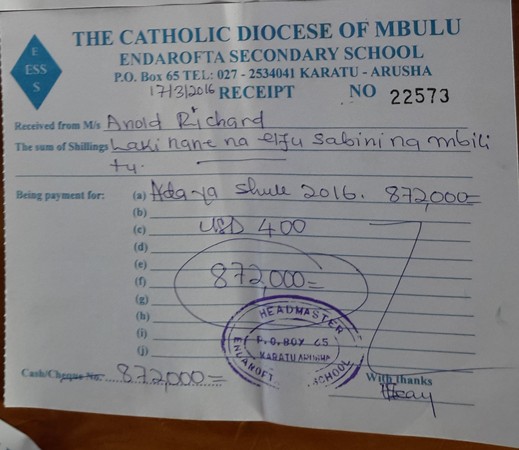 E
ESS
S
THE CATHOLIC DIOCESE OF MBULU
ENDAROFTA SECONDARY SCHOOL
P.O. Box 65 TEL: 027 - 2534041 KARATU - ARUSHA
17/3/2016 RECEIPT NO 22573
Received from M/s Anold Richard
The sum of Shillings Laki nane na elfu sabini na mbili
tu.
Being payment for: (a) Ada ya Shule 2016. 872,000=
(b)
(c) USD 400
(d)
(e)
(f) 872,000=
(g)
(h)
(i)
(j)
HEADMASTER
P.O.BOX 65
KARATU ARUSHA
ENDAROFT SCHOOL
Cash/Cheque No. 872,000=
With thanks